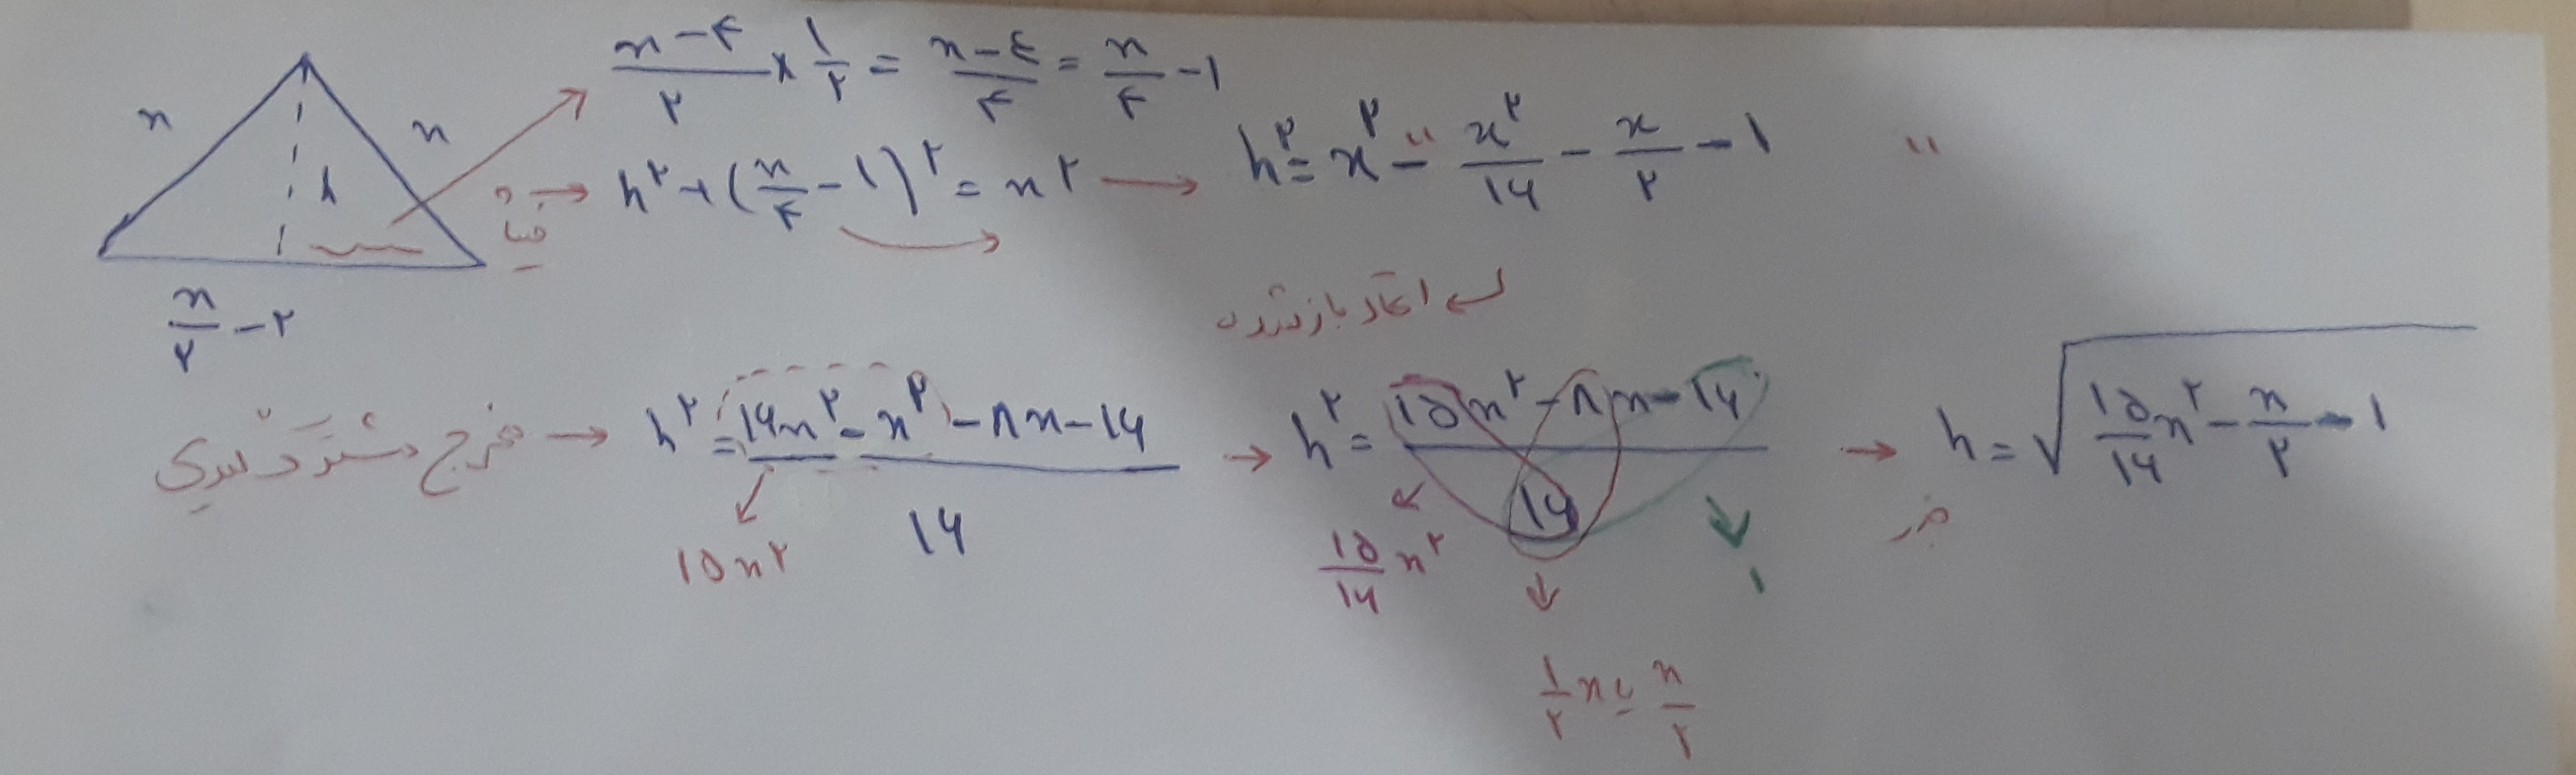 (x-۴)/۲ × ۱/۲ = (x-٤)/۴ = x/۴ - ۱
x
x
h
x/۲ - ۲
h^۲ + (x/۴ - ۱)^۲ = x^۲ → h^۲ = x^۲ - x^۲/۱۶ - x/۲ - ۱
اتحاد باز شده
مخرج مشترک گیری → h^۲ = (۱۶x^۲ - x^۲ - ۸x - ۱۶)/۱۶ → h^۲ = (۱۵x^۲ - ۸x - ۱۶)/۱۶ → h = √(۱۵/۱۶ x^۲ - x/۲ - ۱)
۱۵x^۲
۱۵/۱۶ x^۲
۱
۱/۲ x یا x/۲